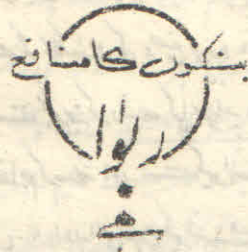 بنکوں کا منافع
ربوٰا
ہے